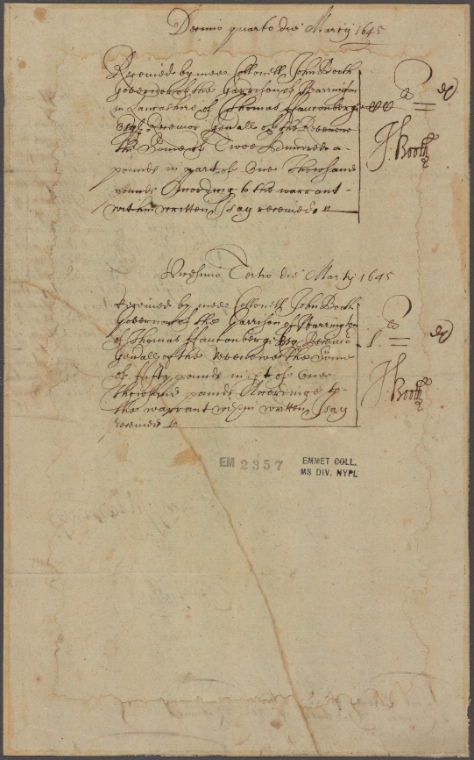 Decimo quarto die Martij 1645
Received by mee Collonell John Booth
Governor of the Garrison of Warrington
in Lancashire of Thomas Fauconberge
Esqr Receivor Genrall of the Revenue
the Some of Twoe hundred
pounds in part of One Thousand
pounds According to the warrant
within written I say received
J: Booth
Vicesimo Tertio die Martij 1645
Received by mee Collonell John Booth
Governor of the Garrison of Warrington
of Thomas Fauconberge Esqr Receivor
Genrall of the Revenue the Some
of fifty pounds in pt of One
thousand pounds Accordinge to
the warrant within written I say
received
J: Booth
EM 2357
EMMET COLL.
MS DIV. NYPL